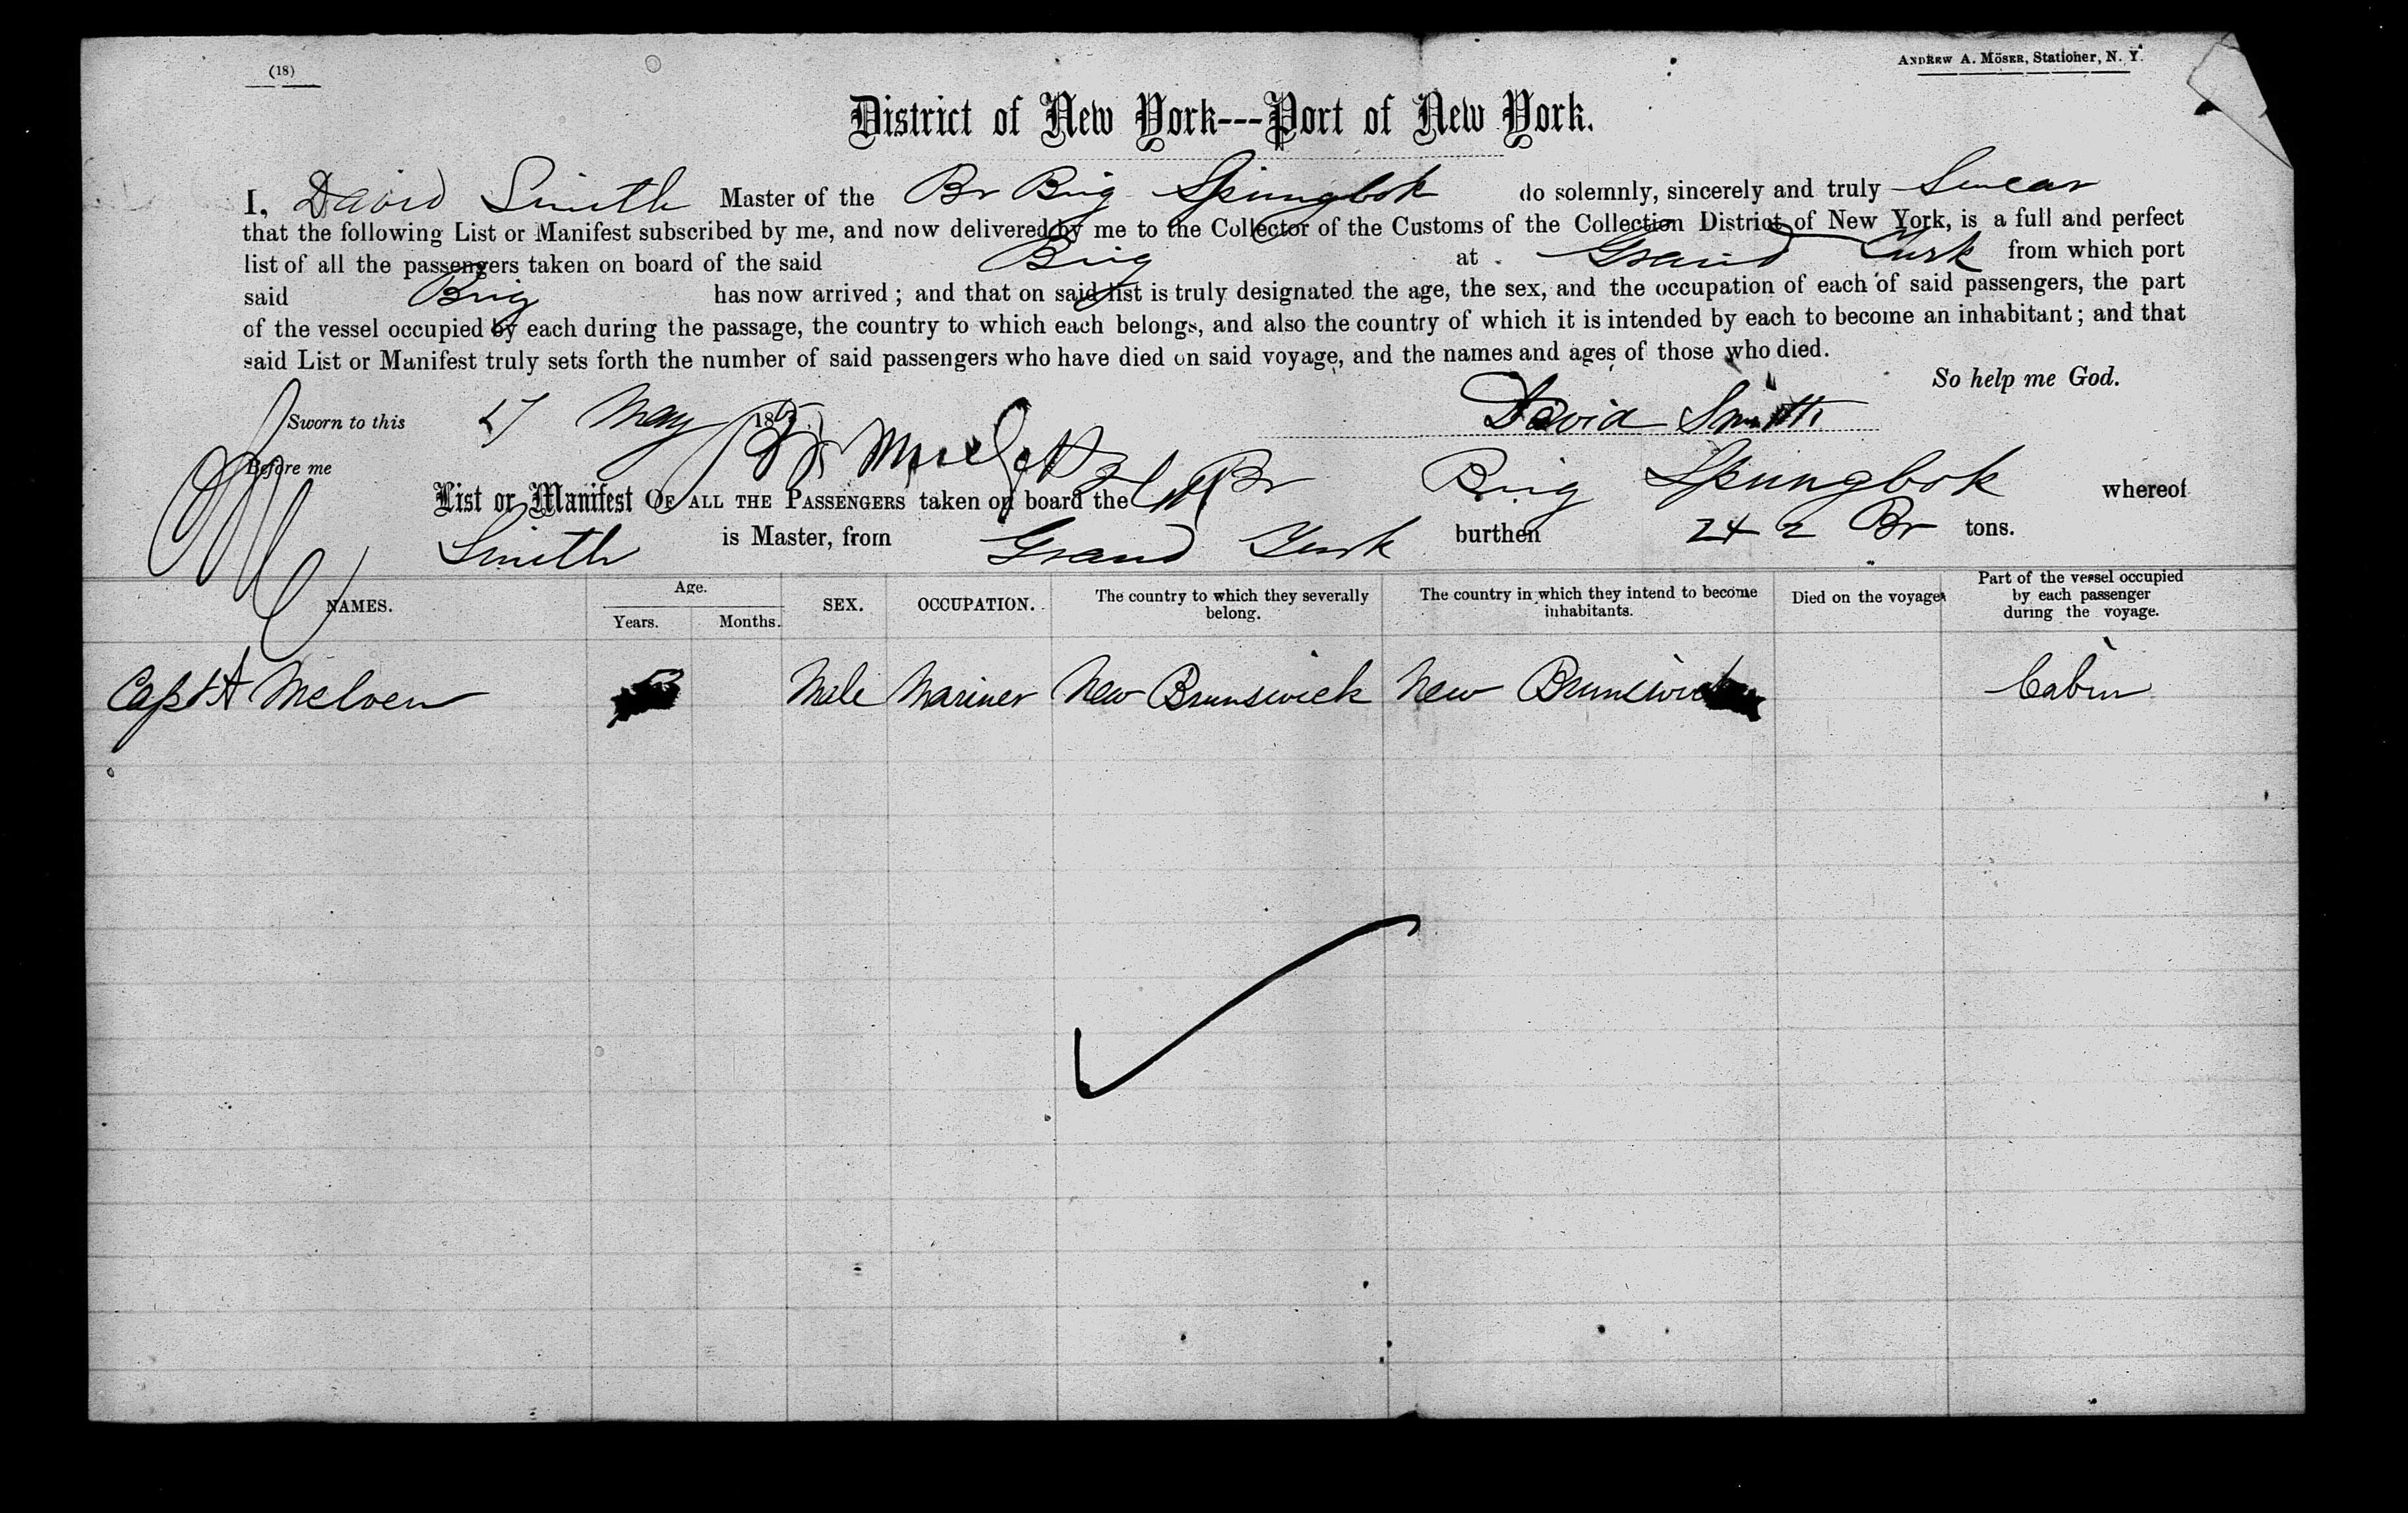 (18)
ANDREW A. MÖSER, Stationer, N. Y.
District of New York---Port of New York.
I, David Smith Master of the Br Brig Springbok do solemnly, sincerely and truly Swear
that the following List or Manifest subscribed by me, and now delivered by me to the Collector of the Customs of the Collection District of New York, is a full and perfect
list of all the passengers taken on board of the said Brig at Grand Turk from which port
said Brig has now arrived ; and that on said list is truly designated the age, the sex, and the occupation of each of said passengers, the part
of the vessel occupied by each during the passage, the country to which each belongs, and also the country of which it is intended by each to become an inhabitant ; and that
said List or Manifest truly sets forth the number of said passengers who have died on said voyage, and the names and ages of those who died.
So help me God.
Sworn to this 17 May 186
David Smith
Before me
List or Manifest OF ALL THE PASSENGERS taken on board the Br Brig Springbok whereof
Smith is Master, from Grand Turk burthen 242 Br tons.
NAMES. Age. Years. Months. SEX. OCCUPATION. The country to which they severally belong. The country in which they intend to become inhabitants. Died on the voyage. Part of the vessel occupied by each passenger during the voyage.
Capt A Melven Male Mariner New Brunswick New Brunswick Cabin